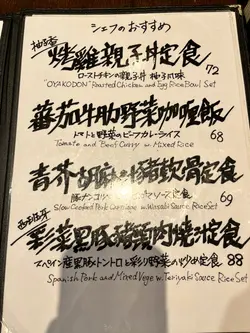 シェフのおすすめ
柚子香
烤雞親子丼定食
ローストチキンの親子丼 柚子風味 72
"OYAKODON" Roasted Chicken and Egg Rice Bowl Set
蕃茄牛肋野菜咖喱飯
トマトと野菜のビーフカレーライス 68
Tomato and Beef Curry w. Mixed Rice
青芥胡麻 猪軟骨定食
定食 69
Slow Cooked Pork Cartilage w. Wasabi Sauce Rice Set
西班牙
彩菜黒豚猪頸肉焼汁定食
スペイン産黒豚トントロと彩り野菜の炒め定食 88
Spanish Pork and Mixed Vege w. Teriyaki Sauce Rice Set